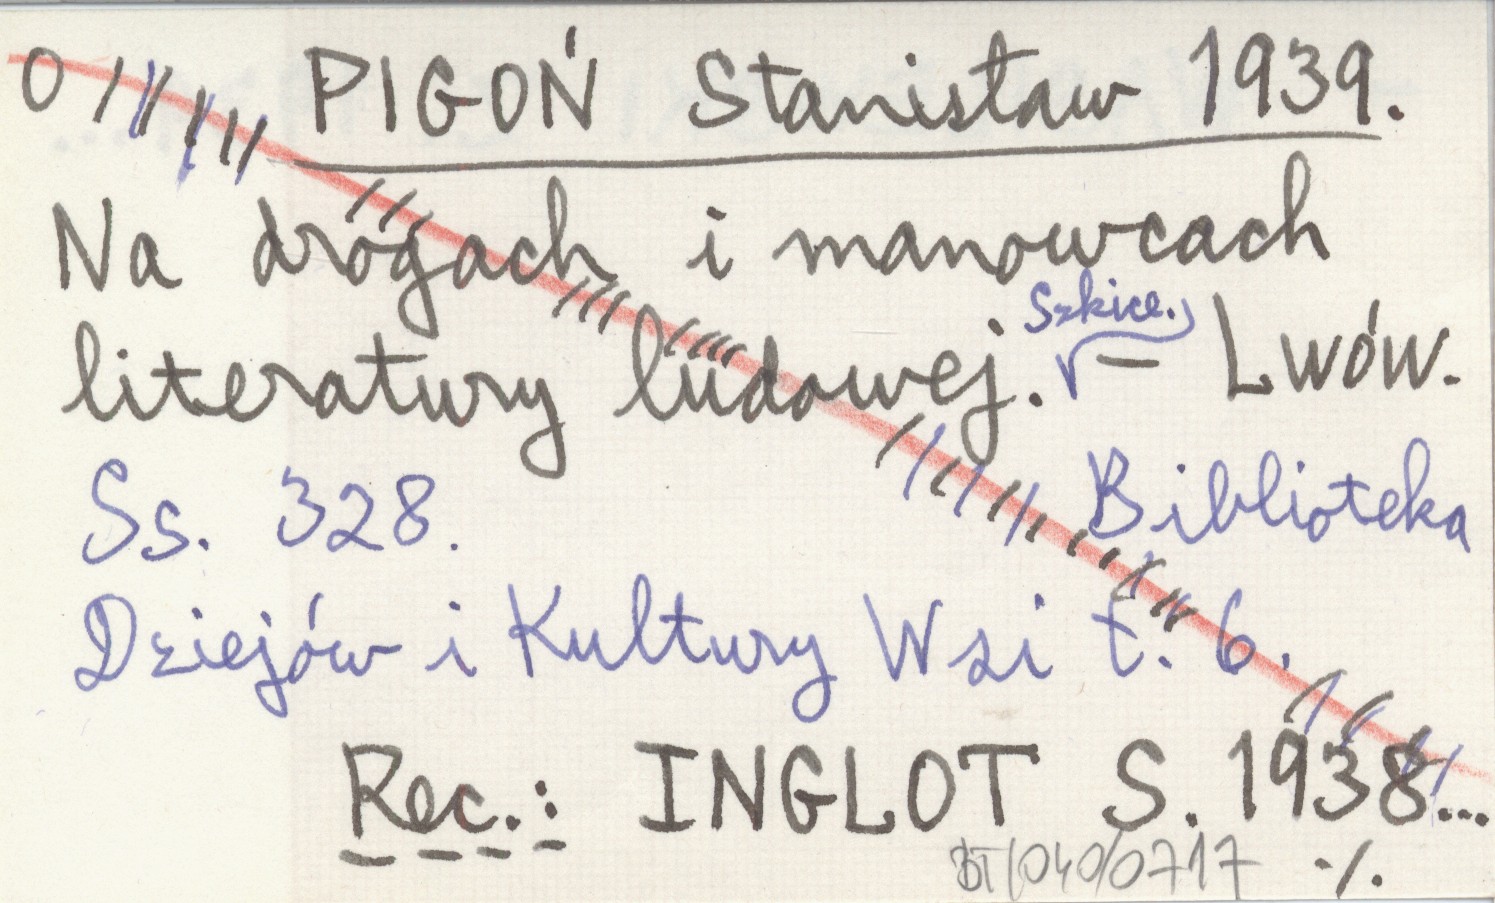 O PIGOŃ Stanisław 1939.
Na drogach i manowcach
Szkice.
literatury ludowej. – Lwów.
Ss. 328. Biblioteka
Dziejów i Kultury Wsi t. 6.
Rec.: INGLOT S. 1938...
BT/040/0717 ·/.